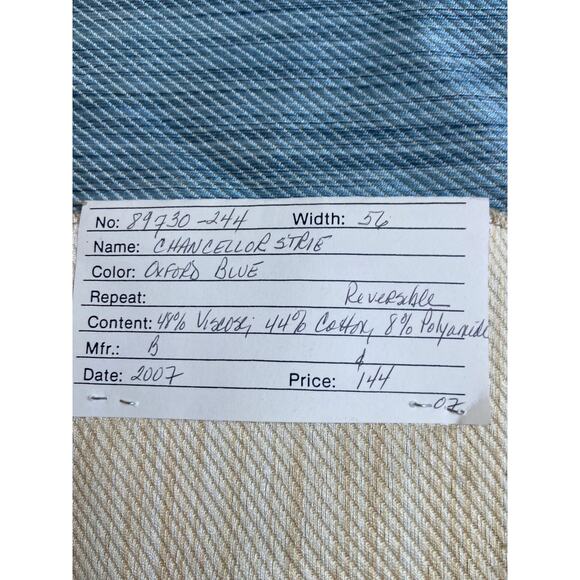 No: 89730-244 Width: 56
Name: CHANCELLOR STRIE
Color: OXFORD BLUE
Repeat: Reversible
Content: 48% Viscose, 44% Cotton, 8% Polyamide
Mfr.: B
Date: 2007 Price: $144
-07